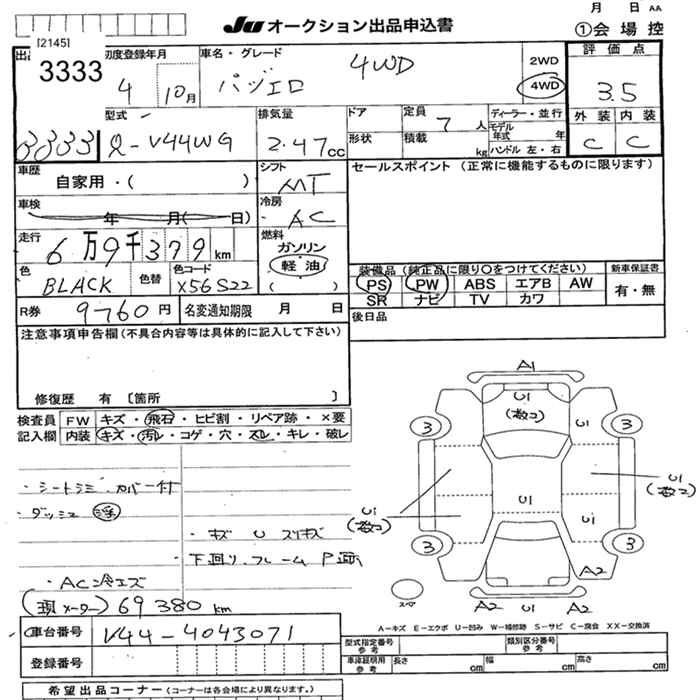 月 日 AA
Ju オークション出品申込書
①会場控
[2145]
3333
初度登録年月
4 10月
車名・グレード
パジェロ 4WD
2WD
4WD
評価点
3.5
型式
Q-V44WG
排気量
2.47cc
ドア
形状
定員
7人
積載
kg
ディーラー・並行
モデル年式 年
ハンドル 左・右
外装 内装
C C
車歴
自家用・( )
シフト
MT
セールスポイント (正常に機能するものに限ります)
車検
年 月( 日)
冷房
AC
走行
6万9千379km
燃料
ガソリン
軽油
( )
色
BLACK
色替
色コード
X56S22
装備品 (純正品に限り○をつけてください)
PS PW ABS エアB AW
SR ナビ TV カワ
新車保証書
有・無
R券
9760円
名変通知期限 月 日
後日品
注意事項申告欄 (不具合内容等は具体的に記入して下さい)
修復歴 有 〔箇所 〕
検査員記入欄
FW キズ・飛石・ヒビ割・リペア跡・×要
内装 キズ・汚レ・コゲ・穴・スレ・キレ・破レ
・シートラミ.カバー付
・ダッシュ浮
・キズ U スリキズ
・下廻り.フレーム P画
・AC冷エズ
(現メーター) 69380km
車台番号
V44-4043071
登録番号
希望出品コーナー (コーナーは各会場により異なります。)
A1
U1
(数コ)
3
3
U1
U1
(数コ)
U1
U1
(数コ)
U1
3
3
A2
A2
A2
スペア
A-キズ E-エクボ U-凹み W-補修跡 S-サビ C-腐食 XX-交換済
型式指定番号 参考
類別区分番号 参考
車庫証明用 参考
長さ cm
幅 cm
高さ cm